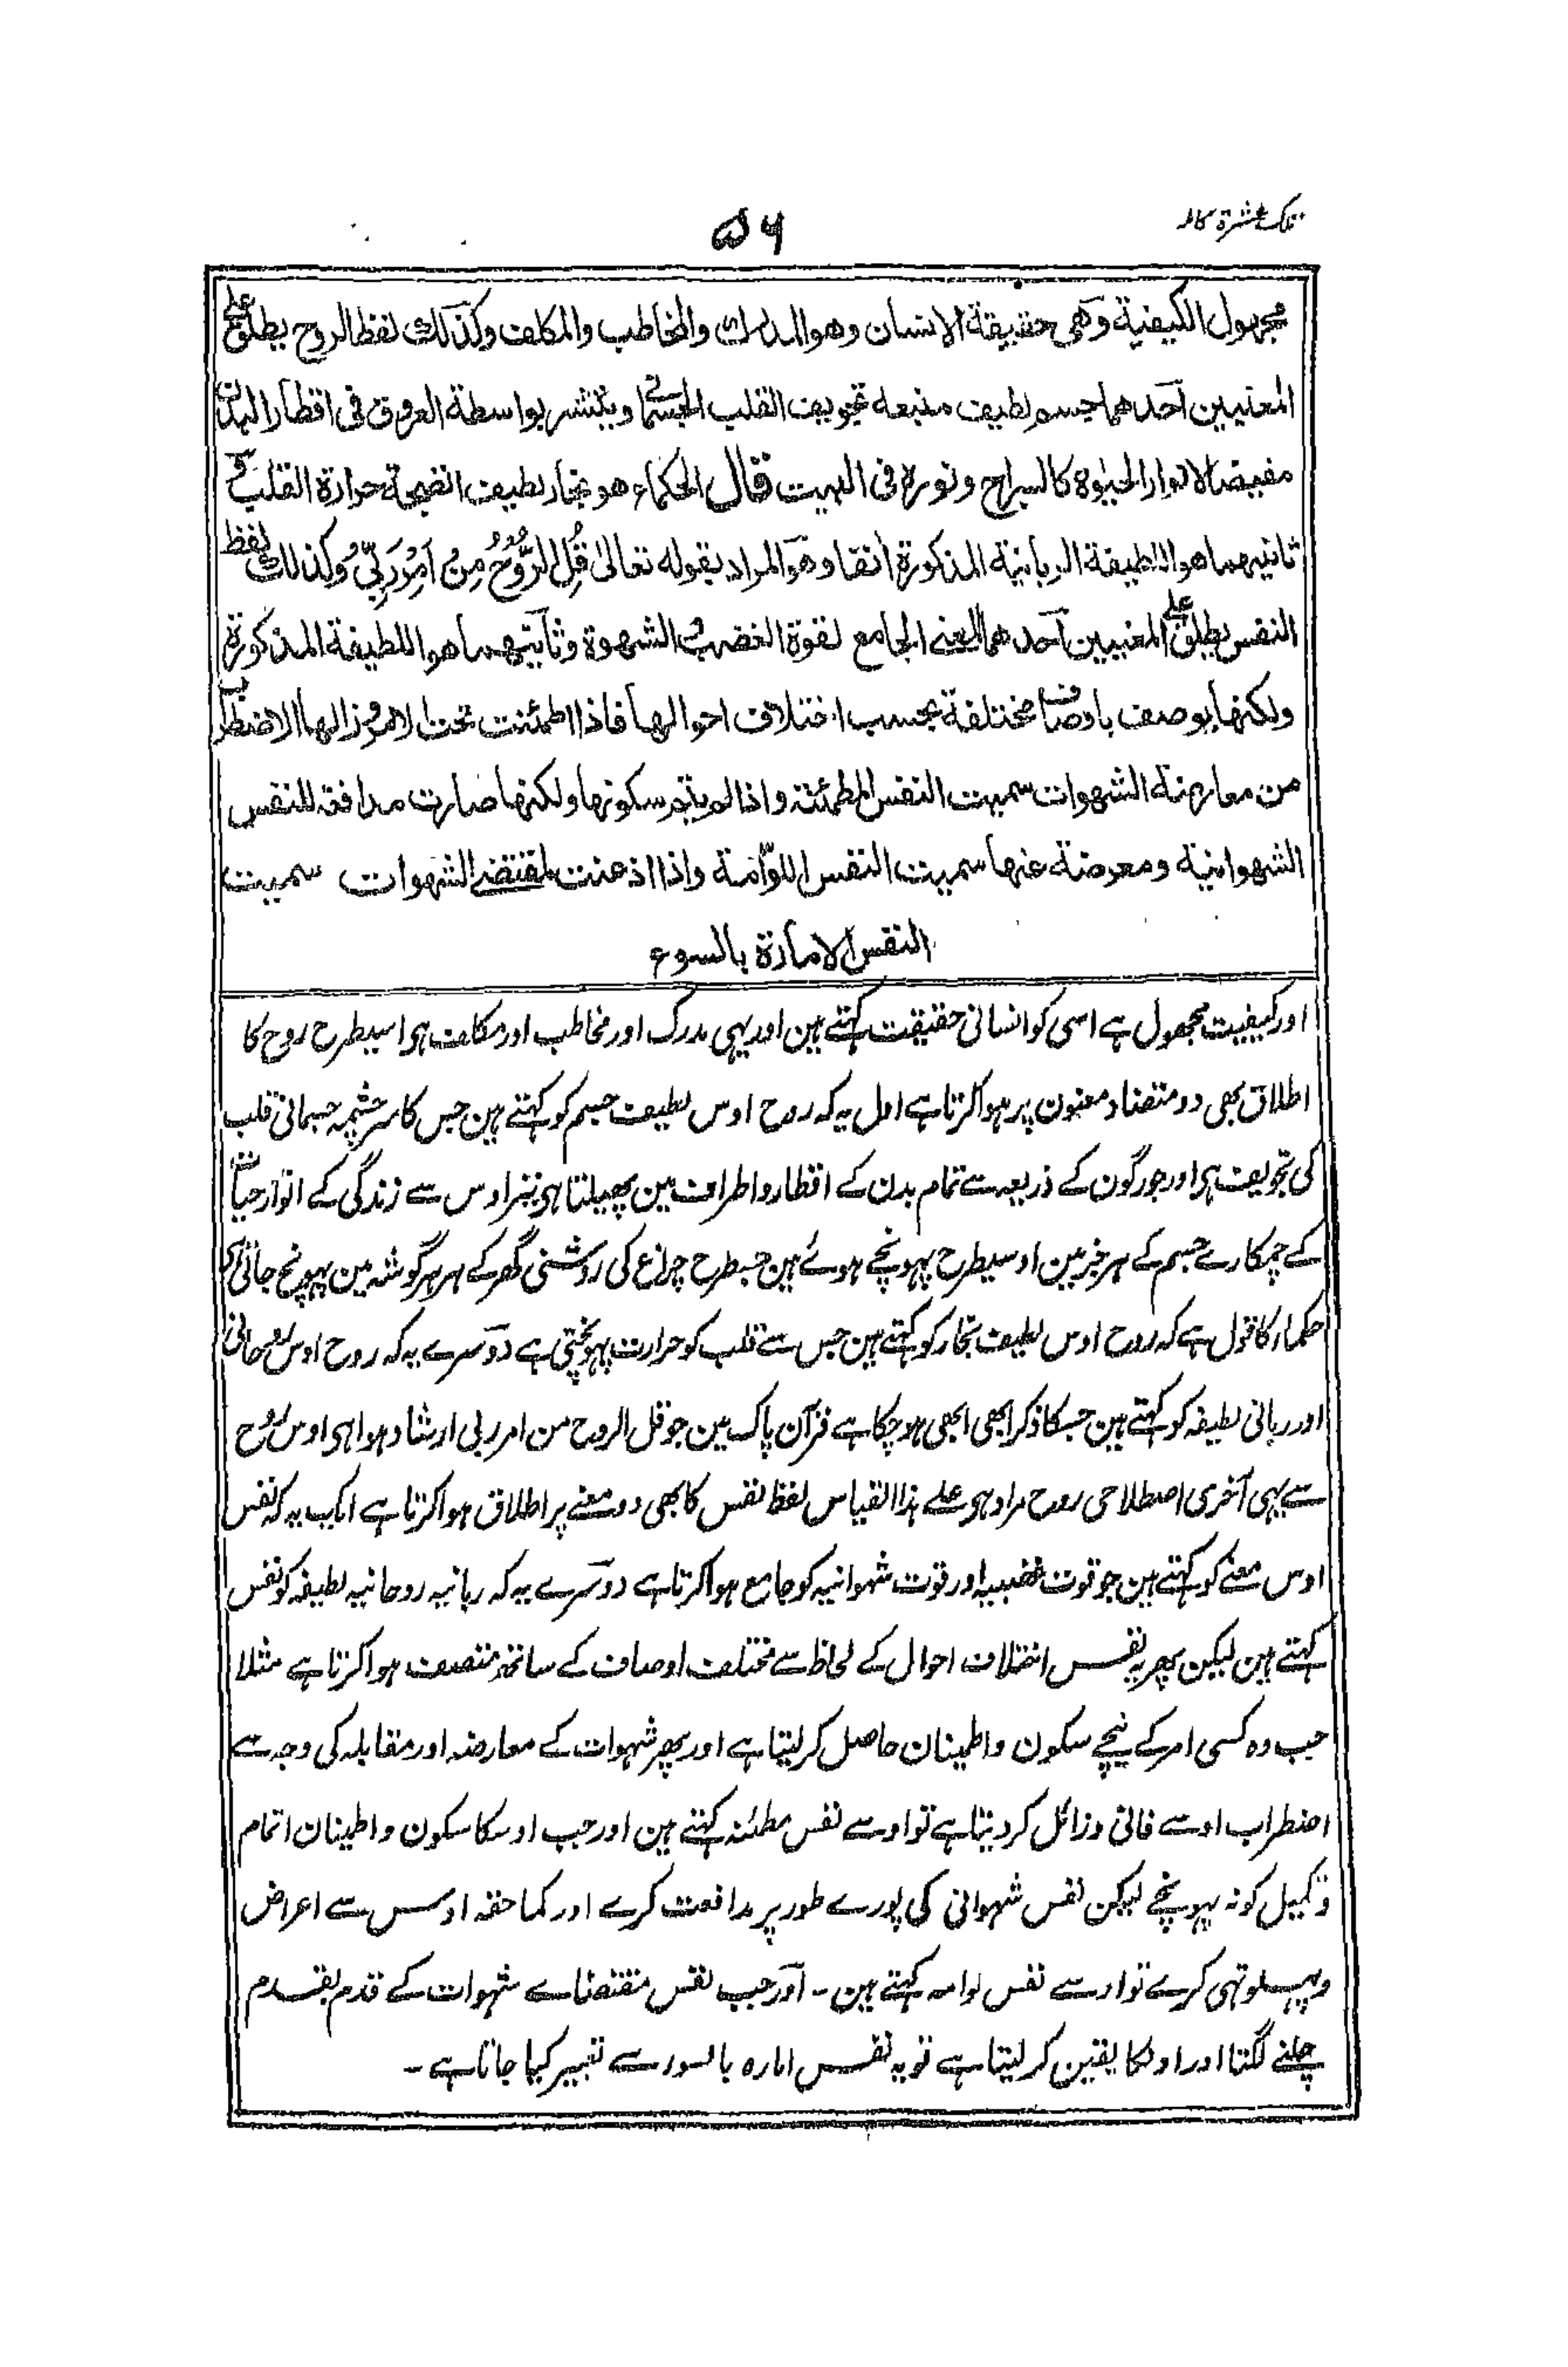 تلک عشرة کاملہ
۵۶
مجهول الكيفية وهى حقيقة الانسان وهو المدرك والمخاطب والمكلف وكذلك لفظ الروح يطلق على
المعنيين احدهما جسم لطيف منبعه تجويف القلب الجسمانى وينتشر بواسطة العروق فى اقطار البدن
مفيضا لانوار الحيوة كالسراج ونوره فى البيت قال الحكماء هو بخار لطيف انضجته حرارة القلب و
ثانيهما هو اللطيفة الربانية المذكورة انفا وهو المراد بقوله تعالى قُلِ الرُّوْحُ مِنْ اَمْرِ رَبِّیْ وكذلك لفظ
النفس يطلق على المعنيين احدهما المعنى الجامع لقوة الغضب والشهوة وثانيهما هو اللطيفة المذكورة
ولكنها يوصف باوصاف مختلفة بحسب اختلاف احوالها فاذا اطمئنت تحت لامر وزالها الاضطراب
من معارضة الشهوات سميت النفس المطمئنة واذا لم يتم سكونها ولكنها صارت مدافعة للنفس
الشهوانية ومعرضة عنها سميت النفس اللوّامة واذا اذعنت لمقتضے الشهوات سميت
النفس الامارة بالسوء
اور کیفیت مجہول ہے اسی کو انسانی حقیقت کہتے ہین اور یہی مدرک اور مخاطب اور مکلف ہی اسیطرح روح کا
اطلاق بھی دو متضاد معنون پر ہوا کرتا ہے اول یہ کہ روح اوس لطیف جسم کو کہتے ہین جس کا سرچشمہ جسمانی قلب
کی تجویف ہی اور جو رگون کے ذریعہ سے تمام بدن کے اقطار و اطراف مین پھیلتا ہی نیز اوس سے زندگی کے انوار حیات
کے چمکارے جسم کے ہر جز مین اوسیطرح پہونچے ہوئے ہین جسطرح چراغ کی روشنی گھر کے ہر ہر گوشہ مین پہونچ جاتی ہی
حکماء کا قول ہے کہ روح اوس لطیف بخار کو کہتے ہین جس سے قلب کو حرارت پہونچتی ہے دوسرے یہ کہ روح اوس روحانی
اور ربانی لطیفہ کو کہتے ہین جسکا ذکر ابھی ابھی ہو چکا ہے قرآن پاک مین جو قل الروح من امر ربی ارشاد ہوا ہی اوس روح
سے یہی آخری اصطلاحی روح مراد ہی علے ہذا القیاس لفظ نفس کا بھی دو معنے پر اطلاق ہوا کرتا ہے ایک یہ کہ نفس
اوس معنے کو کہتے ہین جو قوت غضبیہ اور قوت شہوانیہ کو جامع ہوا کرتا ہے دوسرے یہ کہ ربانیہ روحانیہ لطیفہ کو نفس
کہتے ہین لیکن پھر یہ نفس اختلاف احوال کے لحاظ سے مختلف اوصاف کے ساتھ متصف ہوا کرتا ہے مثلا
جب وہ کسی امر کے نیچے سکون و اطمینان حاصل کر لیتا ہے اور پھر شہوات کے معارضہ اور مقابلہ کی وجہ سے
اضطراب اوسے فانی و زائل کر دیتا ہے تو اوسے نفس مطمئنہ کہتے ہین اور جب اوسکا سکون و اطمینان اتمام
و تکمیل کو نہ پہونچے لیکن نفس شہوانی کی پورے طور پر مدافعت کرے اور کما حقہ اوس سے اعراض
و پہلوتہی کرے تو اوسے نفس لوامہ کہتے ہین ۔ اور جب نفس مقتضائے شہوات کے قدم بقدم
چلنے لگتا اور اونکا یقین کر لیتا ہے تو یہ نفس امارہ بالسوء سے تعبیر کیا جاتا ہے ۔